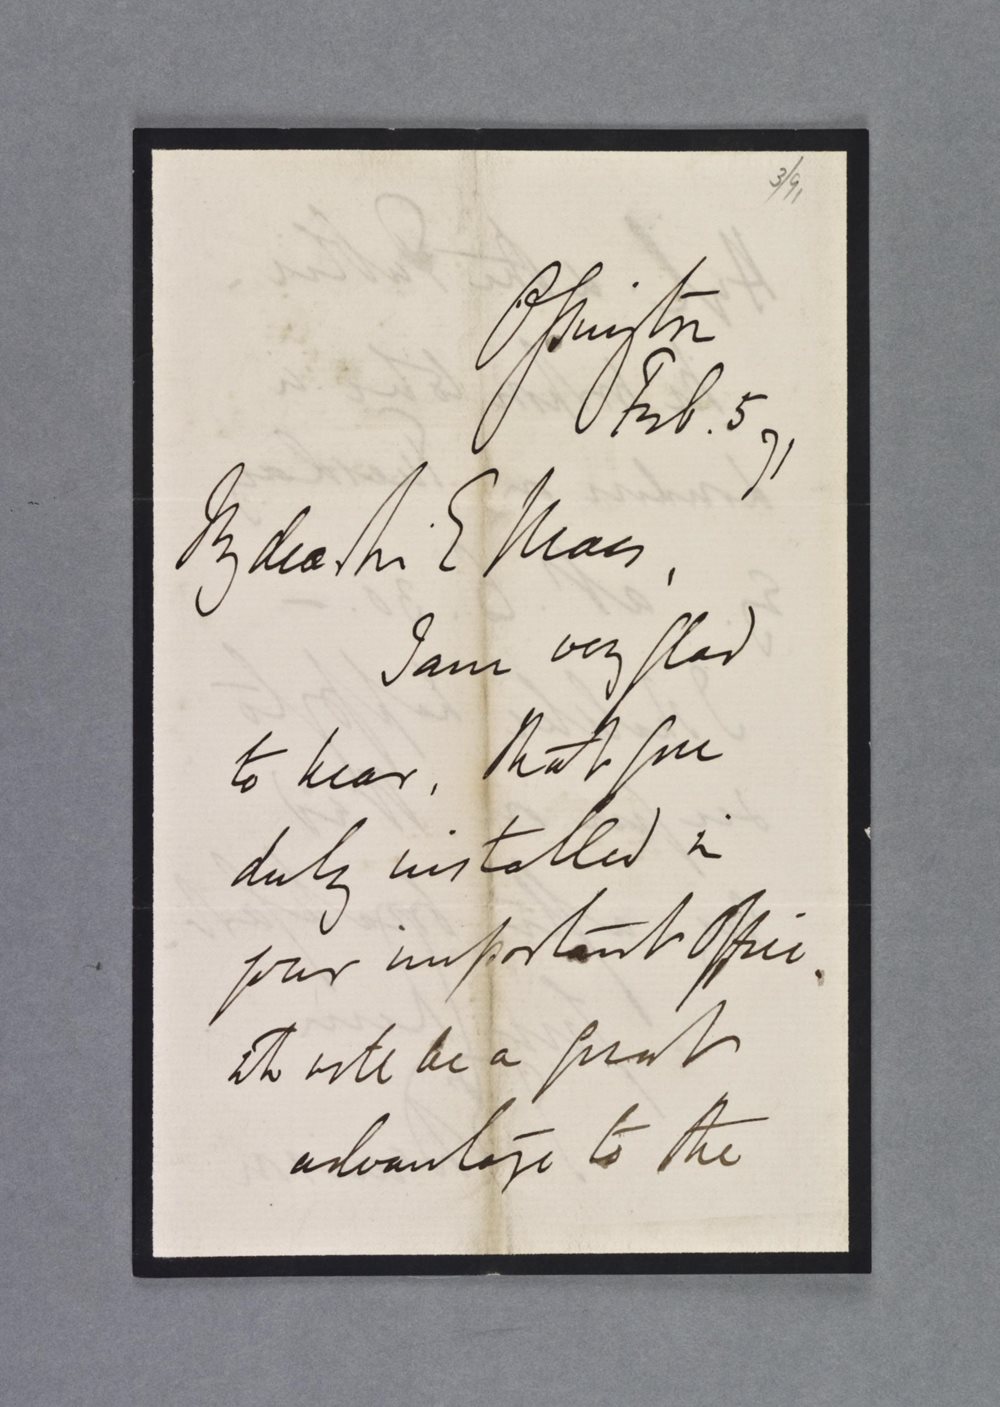 3/91
Ossington
Feb. 5, 71
My dear Sir E May,
I am very glad
to hear, that you
duly installed in
your important Office.
It will be a great
advantage to the